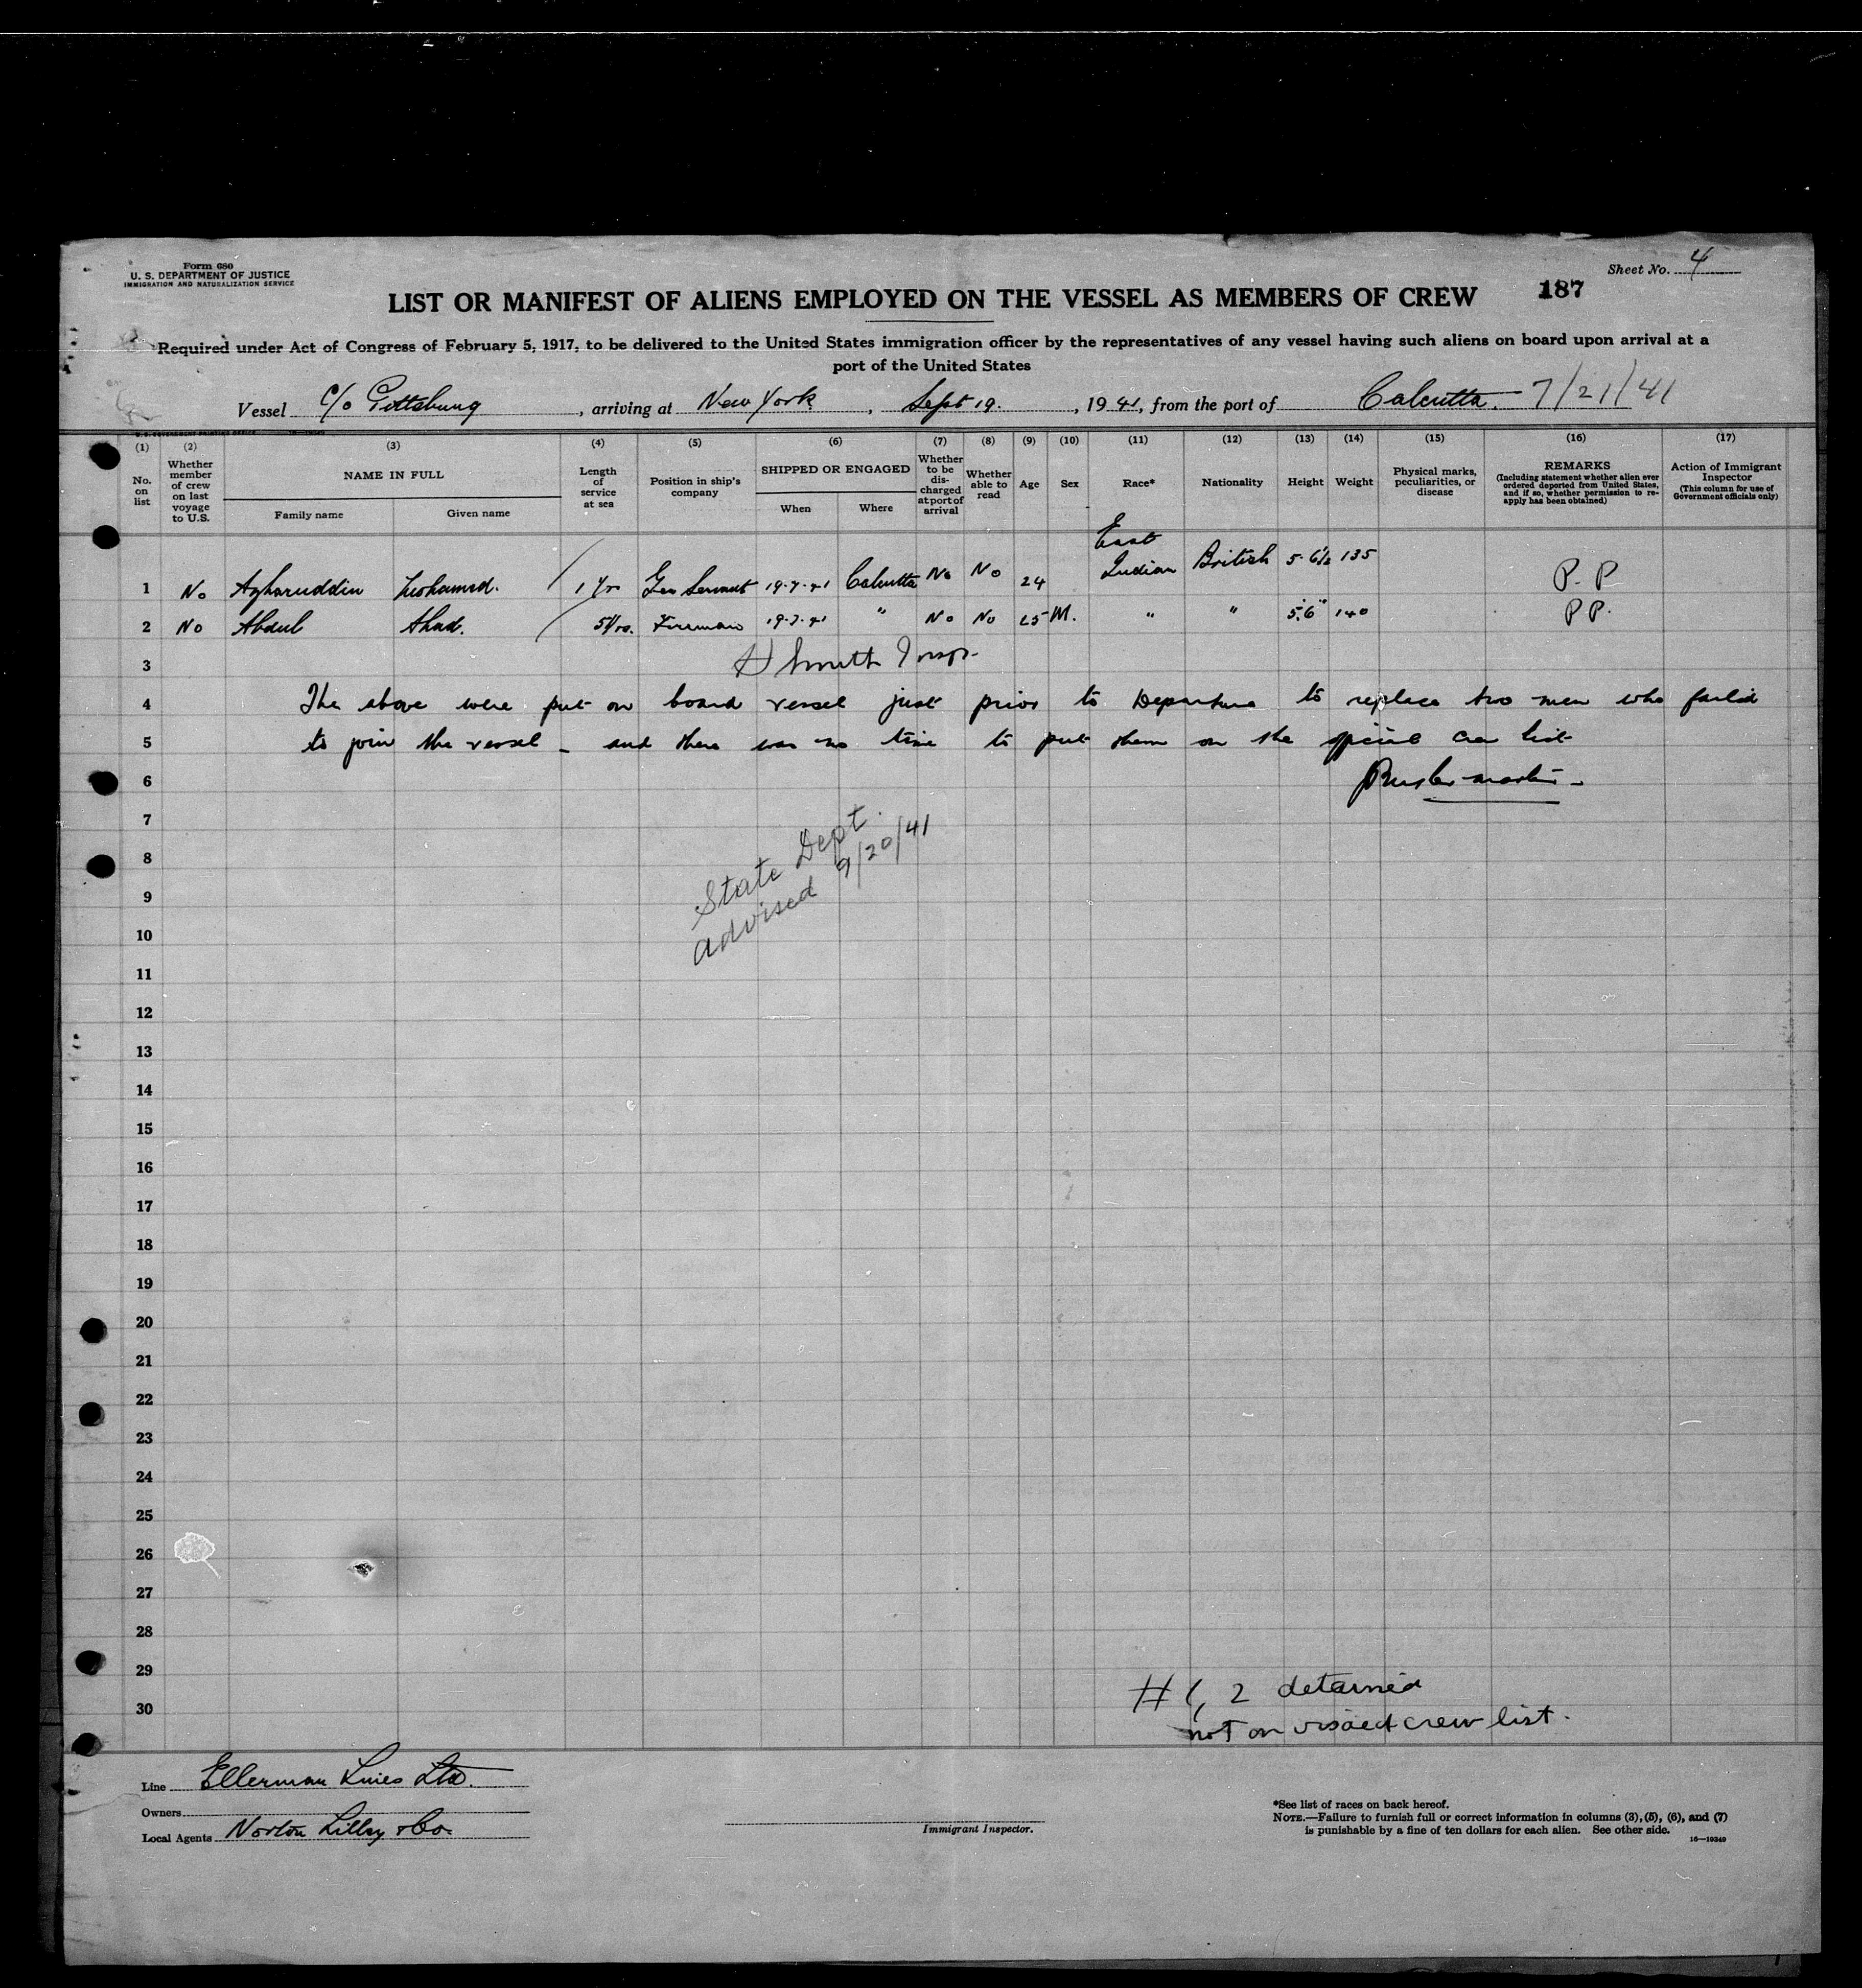 Form 680
U. S. DEPARTMENT OF JUSTICE
IMMIGRATION AND NATURALIZATION SERVICE
Sheet No. 4
LIST OR MANIFEST OF ALIENS EMPLOYED ON THE VESSEL AS MEMBERS OF CREW
187
Required under Act of Congress of February 5, 1917, to be delivered to the United States immigration officer by the representatives of any vessel having such aliens on board upon arrival at a
port of the United States
Vessel C/o Pittsburg, arriving at New York, Sept 19., 1941, from the port of Calcutta. 7/21/41
U. S. GOVERNMENT PRINTING OFFICE
(1) (2) (3) (4) (5) (6) (7) (8) (9) (10) (11) (12) (13) (14) (15) (16) (17)
No. on list
Whether member of crew on last voyage to U.S.
NAME IN FULL
Family name
Given name
Length of service at sea
Position in ship's company
SHIPPED OR ENGAGED
When
Where
Whether to be discharged at port of arrival
Whether able to read
Age
Sex
Race*
Nationality
Height
Weight
Physical marks, peculiarities, or disease
REMARKS
(Including statement whether alien ever ordered deported from United States, and if so, whether permission to reapply has been obtained)
Action of Immigrant Inspector
(This column for use of Government officials only)
1 No Azharuddin 1 Yr Gen Servant 19.7.41 Calcutta No No 24 East Indian British 5-6½ 135 P. P
2 No Abdul Ahad. 5 Yrs. Fireman 19.7.41 " No No 25 M. " " 5'.6" 140 P P.
3 H Smith Insp.
4 The above were put on board vessel just prior to Departure to replace two men who failed
5 to join the vessel - and there was no time to put them on the special crew list
6
7
8
9
10
11
12
13
14
15
16
17
18
19
20
21
22
23
24
25
26
27
28
29
30
State Dept.
advised 9/20/41
# 1, 2 detained
not on visaed crew list.
Line Ellerman Lines Ltd.
Owners
Local Agents Norton Lilly & Co.
Immigrant Inspector.
*See list of races on back hereof.
NOTE.—Failure to furnish full or correct information in columns (3), (5), (6), and (7)
is punishable by a fine of ten dollars for each alien. See other side.
16—19349